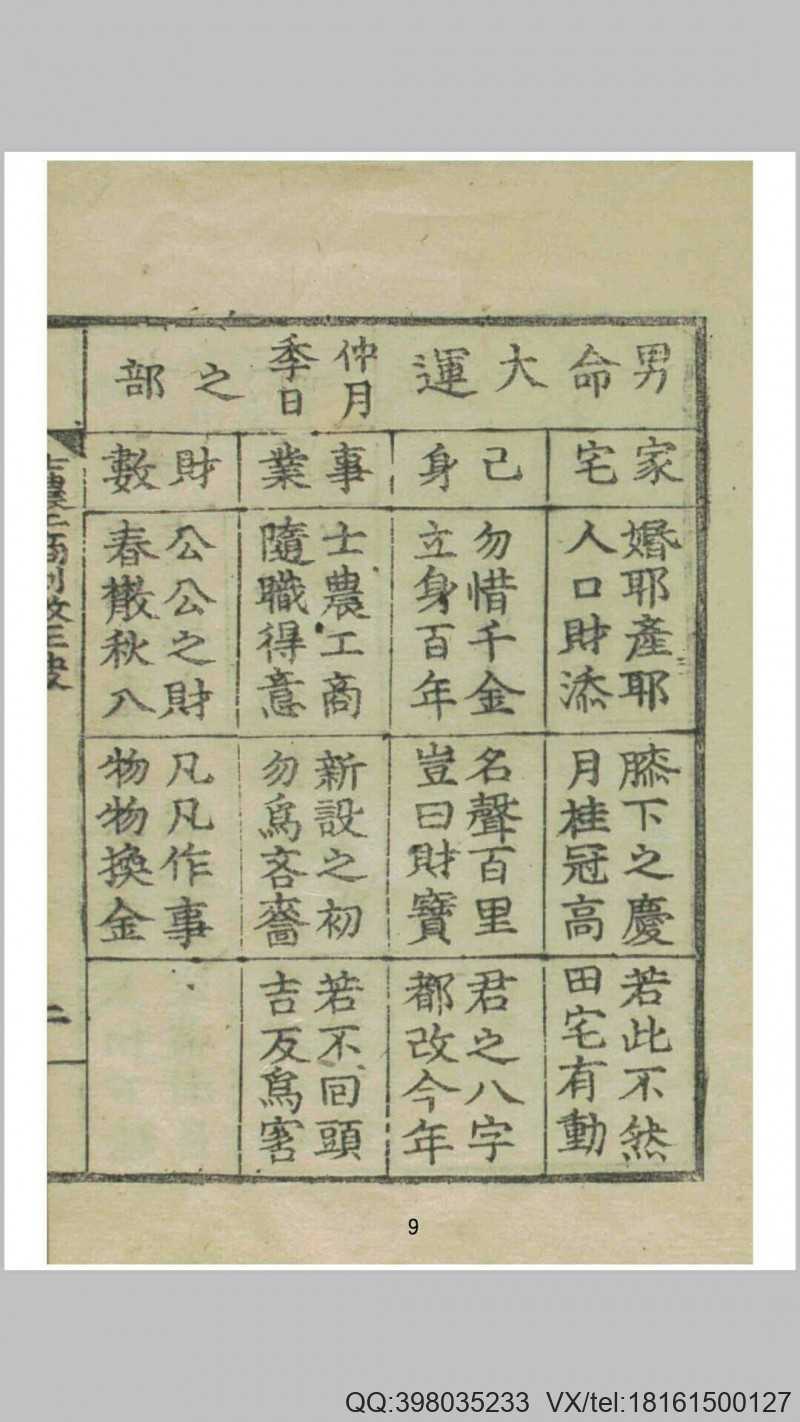 男命大運仲月季日之部
家宅
婚耶產耶
人口財添
膝下之慶
月桂冠高
若此不然
田宅有動
己身
勿惜千金
立身百年
名聲百里
豈曰財寶
君之八字
都改今年
事業
士農工商
隨職得意
新設之初
勿爲吝嗇
若不回頭
吉反爲害
財數
公公之財
春散秋入
凡凡作事
物物換金
二
9
QQ:398035233 VX/tel:18161500127